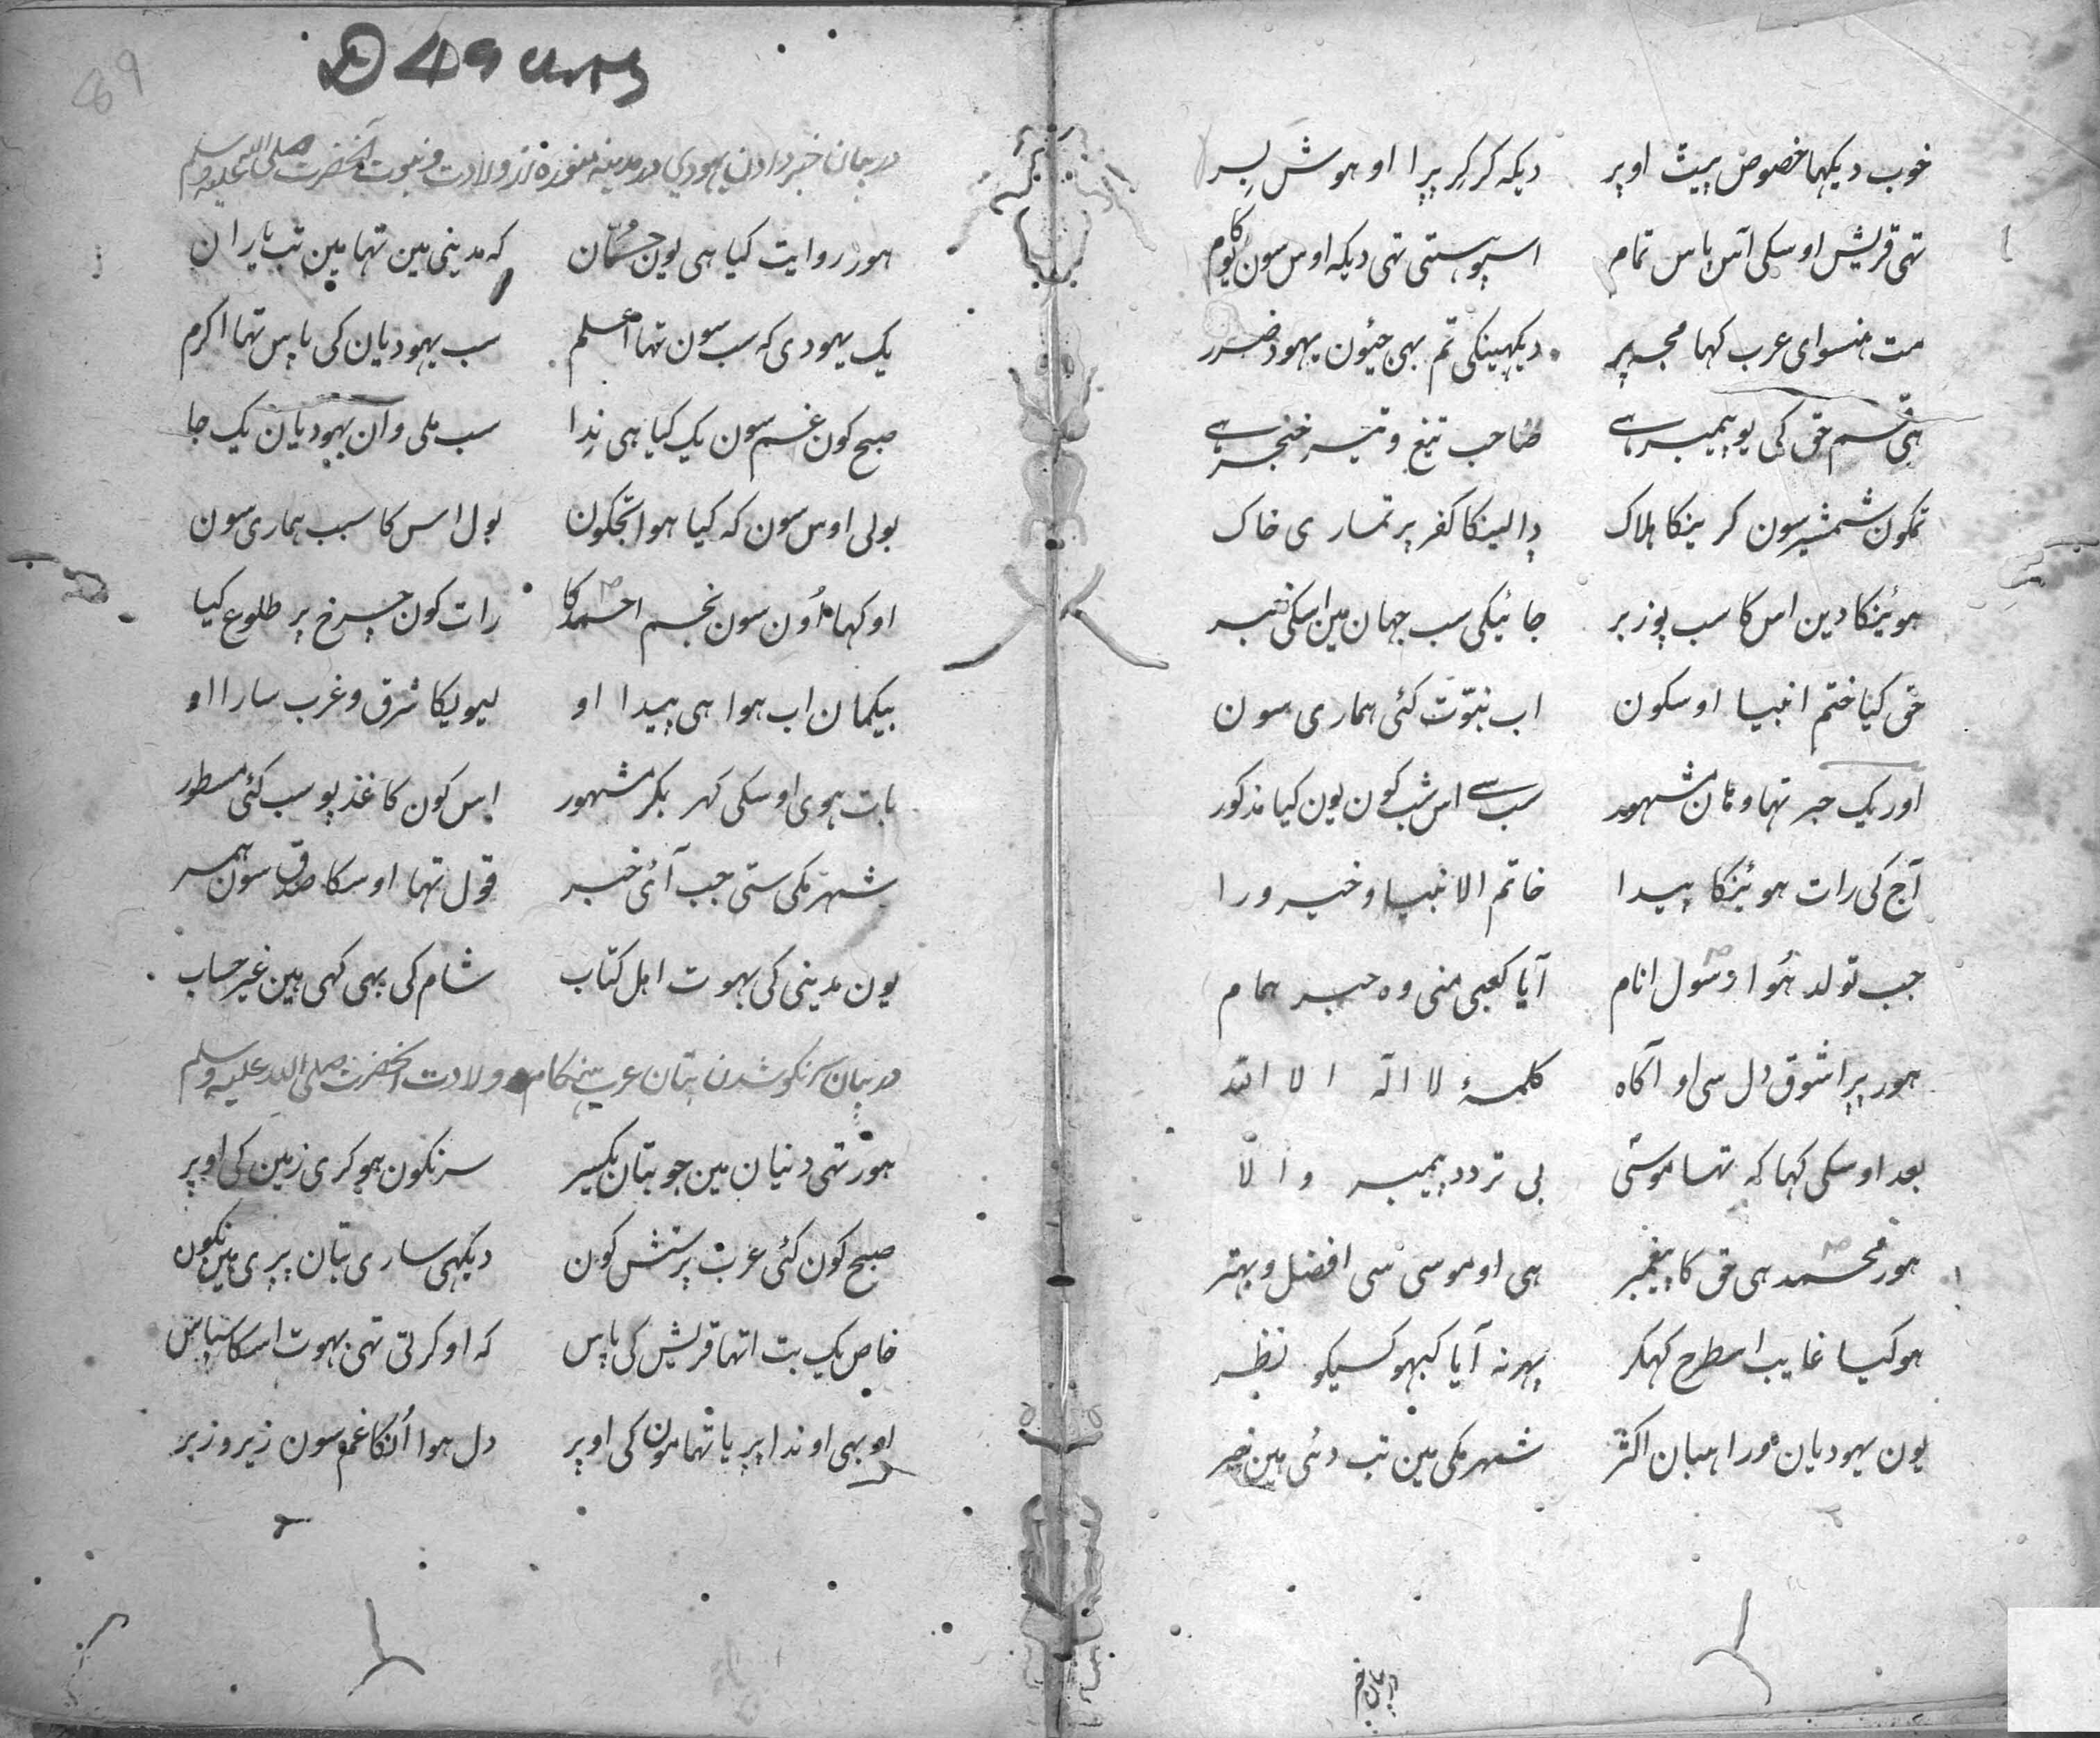 خوب دیکہا خصوص پیٹ اوپر دیکہ کر کر پرا او ہوش بسر
تہی قریش اوسکی آس پاس تمام ہنستی تہی دیکہ اوس سون
مت ہنسو ای عرب کہا مجہ پر دیکہینکی تم بہی جیون یہود ضرر
ہی قسم حق کی یو پیمبر ہے صاحب تیغ و تیر خنجر ہے
تمکون شمشیر سون کرینکا ہلاک دالینکا کفر پر تماری خاک
ہوئینکا دین اس کا سب پو زبر جائیکی سب جہان مین اسکی خبر
حق کیا ختم انبیا اوسکون اب نبوّت کئی ہماری سون
اور یک حبر تہا وہان مشہور سب سے اس شب کون یون کیا مذکور
آج کی رات ہوئینکا پیدا خاتم الانبیا و خیر ورا
جب تولد ہُوا رسول انام آیا کعبی منی وہ حبر ہمام
ہور پرا شوق دل سی او آکاہ کلمۂ لا الہ الا اللہ
بعد اوسکی کہا کہ تہا موسٰی بی تردد پیمبر والا
ہور محمد ہی حق کا پیغمبر ہی او موسی سی افضل و بہتر
ہو کیا غایب اسطرح کہکر پہر نہ آیا کبہو کسیکو نظر
یون یہودیان ہور راہبان اکثر شہر مکی مین تب دئی ہین خبر
در بیان خبر
89
D 49 Urdu
در بیان خبر دادن یہودی در مدینہ منورہ از ولادت و نبوت آنحضرت صلی اللہ علیہ وسلم
ہور روایت کیا ہی یون حسّان کہ مدینی مین تہا مین تب یاران
یک یہودی کہ سب سون تہا اعلم سب یہودیان کی پاس تہا اکرم
صبح کون غم سون یک کیا ہی نِدا سب ملی وان یہودیان یک جا
بولی اوس سون کہ کیا ہوا تجکون بول اس کا سبب ہماری سون
او کہا اُون سون نجم احمد کا رات کون چرخ پر طلوع کیا
بیکمان اب ہوا ہی پیدا او لیویکا شرق و غرب سارا او
بات ہوی اوسکی کہر بکر مشہور اس کون کاغذ پو سب کئی مسطور
شہر مکی ستی جب آئی خبر قول تہا اوسکا صدق سون ہمسر
یون مدینی کی بہوت اہل کتاب شام کی بہی کہی ہین غیر حساب
در بیان سرنکو شدن بتان عرب ہنکام ولادت آنحضرت صلی اللہ علیہ وسلم
ہور تہی دنیان مین جو بتان یکسیر سرنکون ہو کری زمین کی اوپر
صبح کون کئی عرب پرستش کون دیکہی ساری بتان پری ہین نکون
خاص یک بت اتہا قریش کی پاس کہ او کرتی تہی بہوت اسکا سپاس
او بہی اوندا پریا تہا مون کی اوپر دل ہوا اُنکا غم سون زیر و زبر